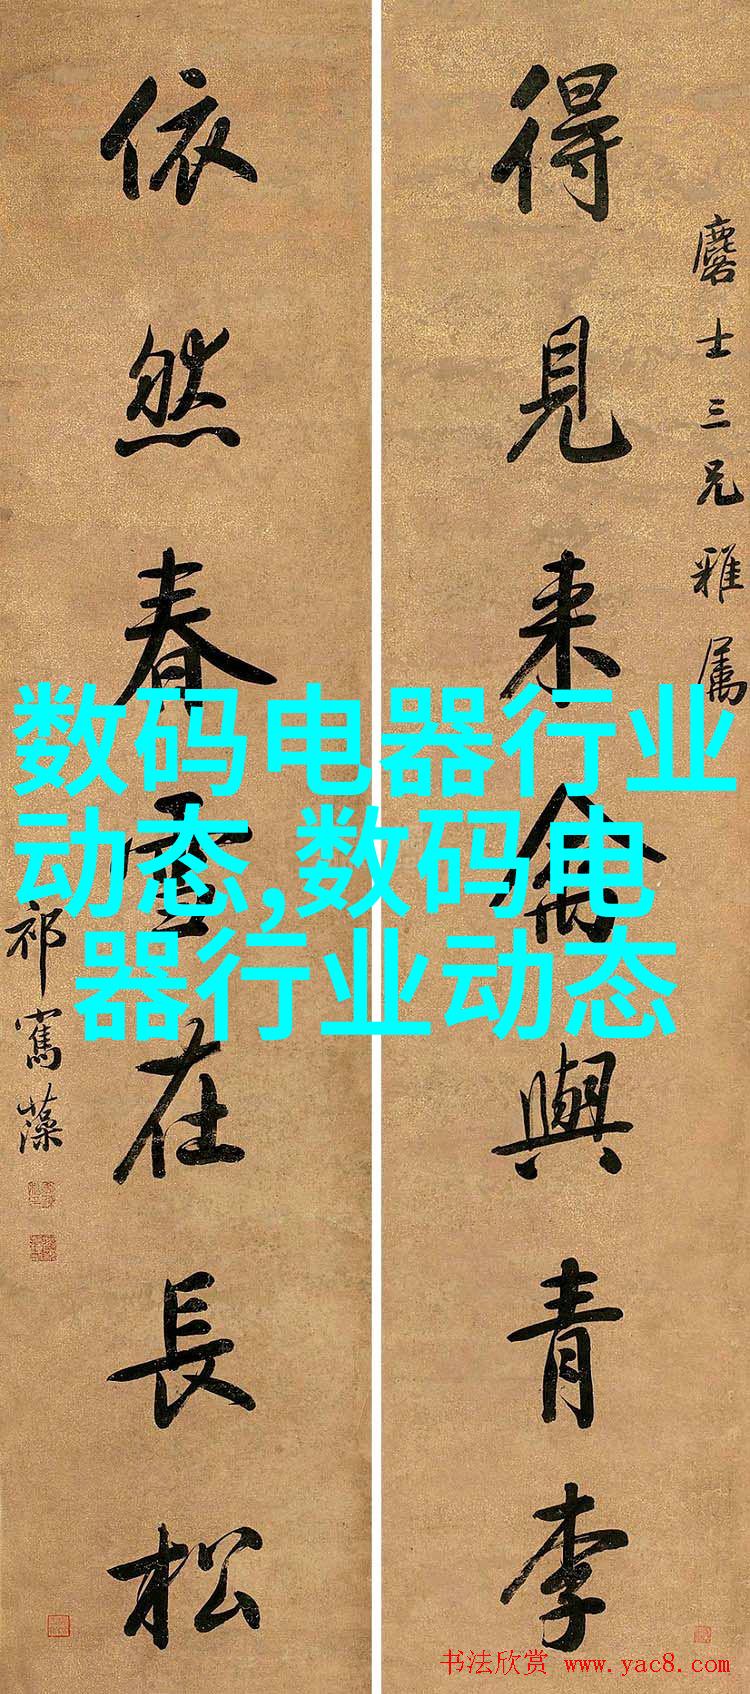 得見来禽與青李
麐士三兄雅属
依然春雪在長松
祁寯藻
数码电器行业
动态,数码电
器行业动态
书法欣赏 www.yac8.com